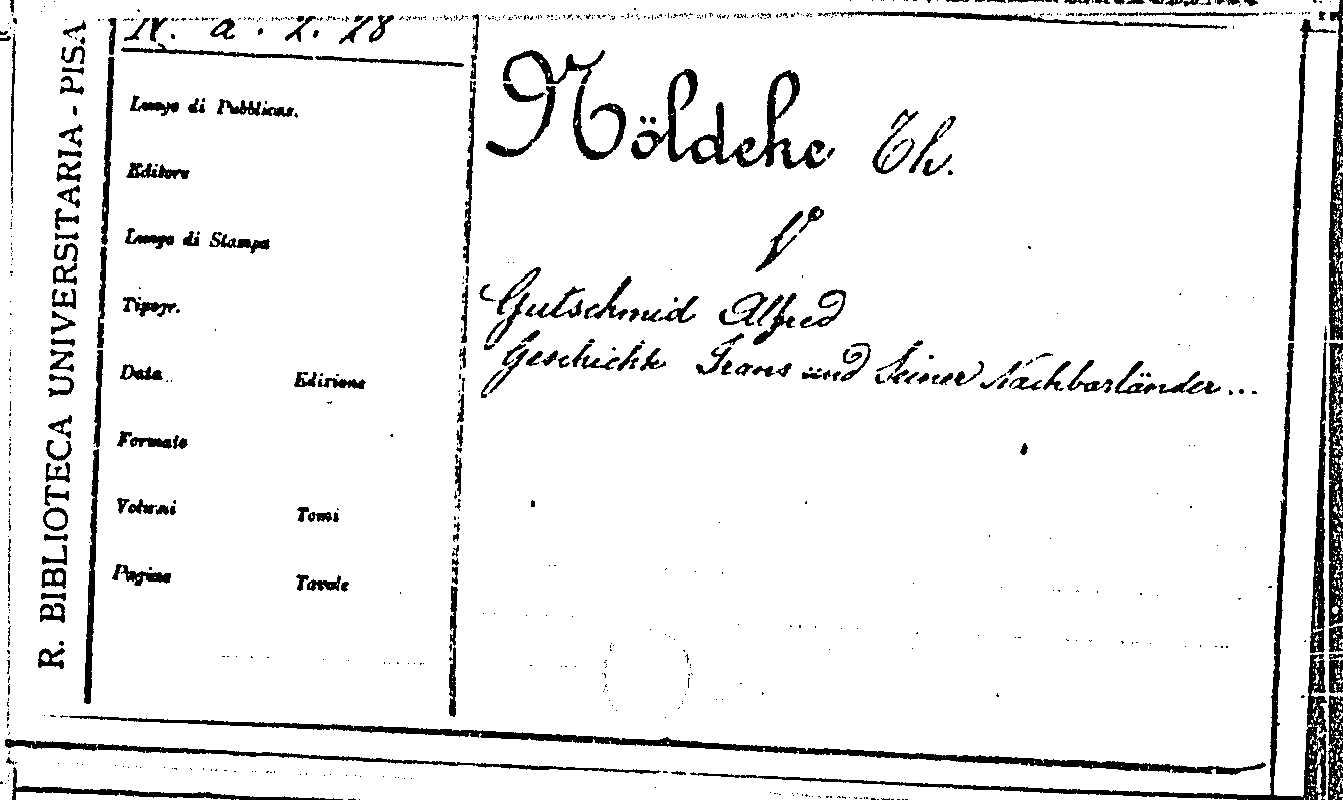 R. BIBLIOTECA UNIVERSITARIA - PISA
N. a. 2. 28
Luogo di Pubblicaz.
Editore
Luogo di Stampa
Tipogr.
Data Edizione
Formato
Volumi Tomi
Pagine Tavole
Nöldeke Th.
V°
Gutschmid Alfred
Geschichte Irans und Seiner Nachbarländer...